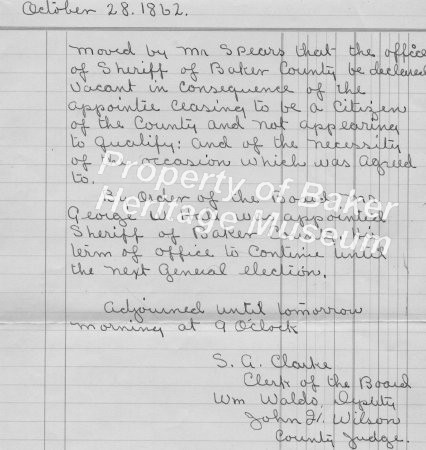 October 28. 1862.
Moved by Mr Spears that the office
of Sheriff of Baker County be declared
vacant in consequence of the
appointie ceasing to be a Citizen
of the County and not appearing
to qualify: and of the necessity
of the occasion which was agreed
to.
By Order of the Board
George W. was appointed
Sheriff of Baker
term of office to Continue until
the next General election.
Adjourned until tomorrow
morning at 9 OClock
S. A. Clarke
Clerk of the Board
Wm Waldo, Dyputy
John Q. Wilson
County Judge.
Property of Baker
Heritage Museum